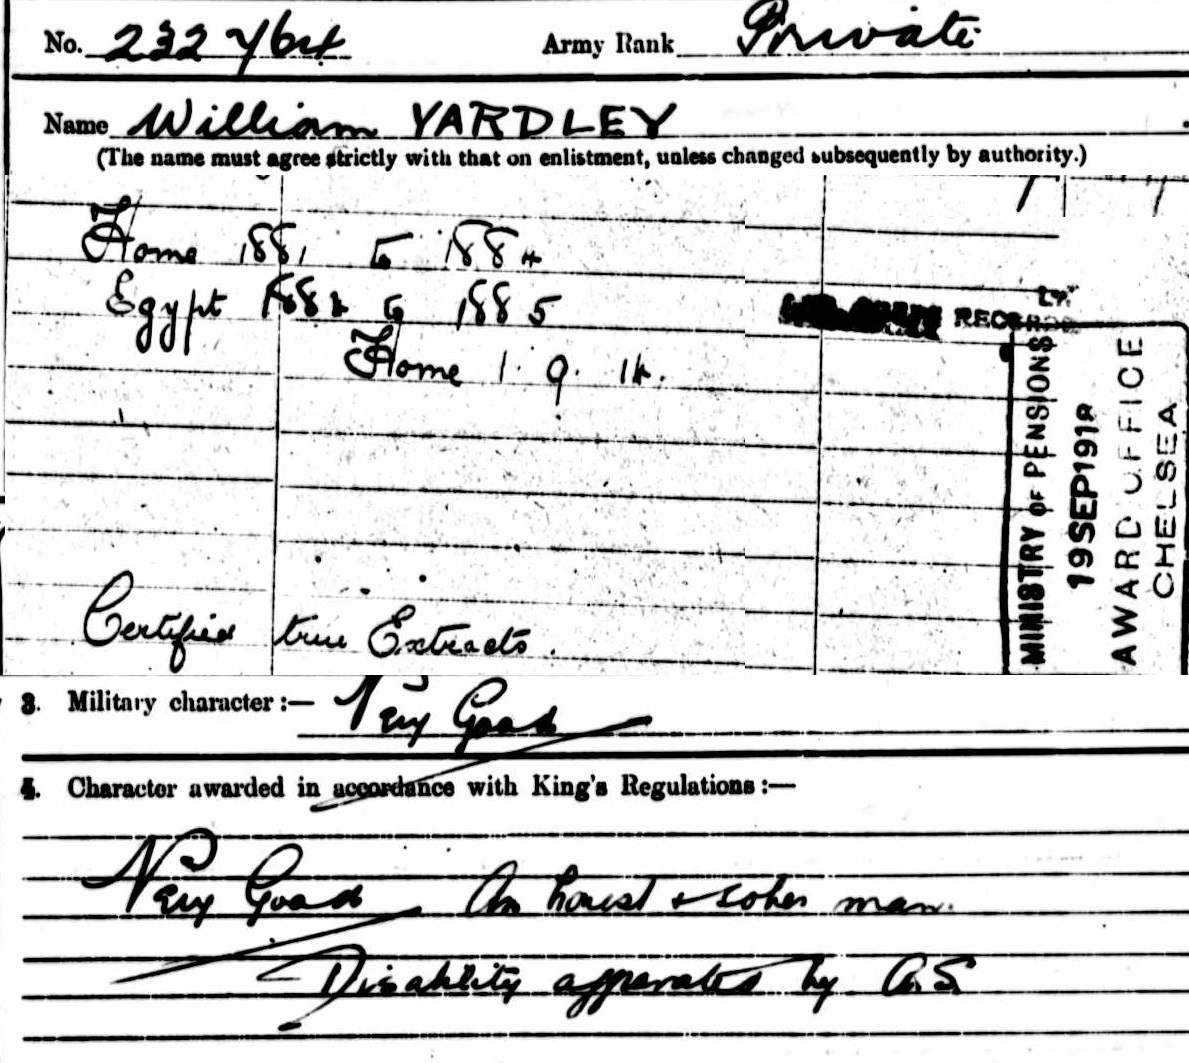 No. 232764 Army Rank Private
Name William YARDLEY
(The name must agree strictly with that on enlistment, unless changed subsequently by authority.)
Home 1881 to 1884
Egypt 1882 to 1885
Home 1. 9. 14.
RECORDS
MINISTRY OF PENSIONS
19 SEP 1918
AWARD OFFICE
CHELSEA
Certified true Extracts.
3. Military character :— Very Good
4. Character awarded in accordance with King's Regulations :—
Very Good An honest & sober man.
Disability aggravated by A.S.